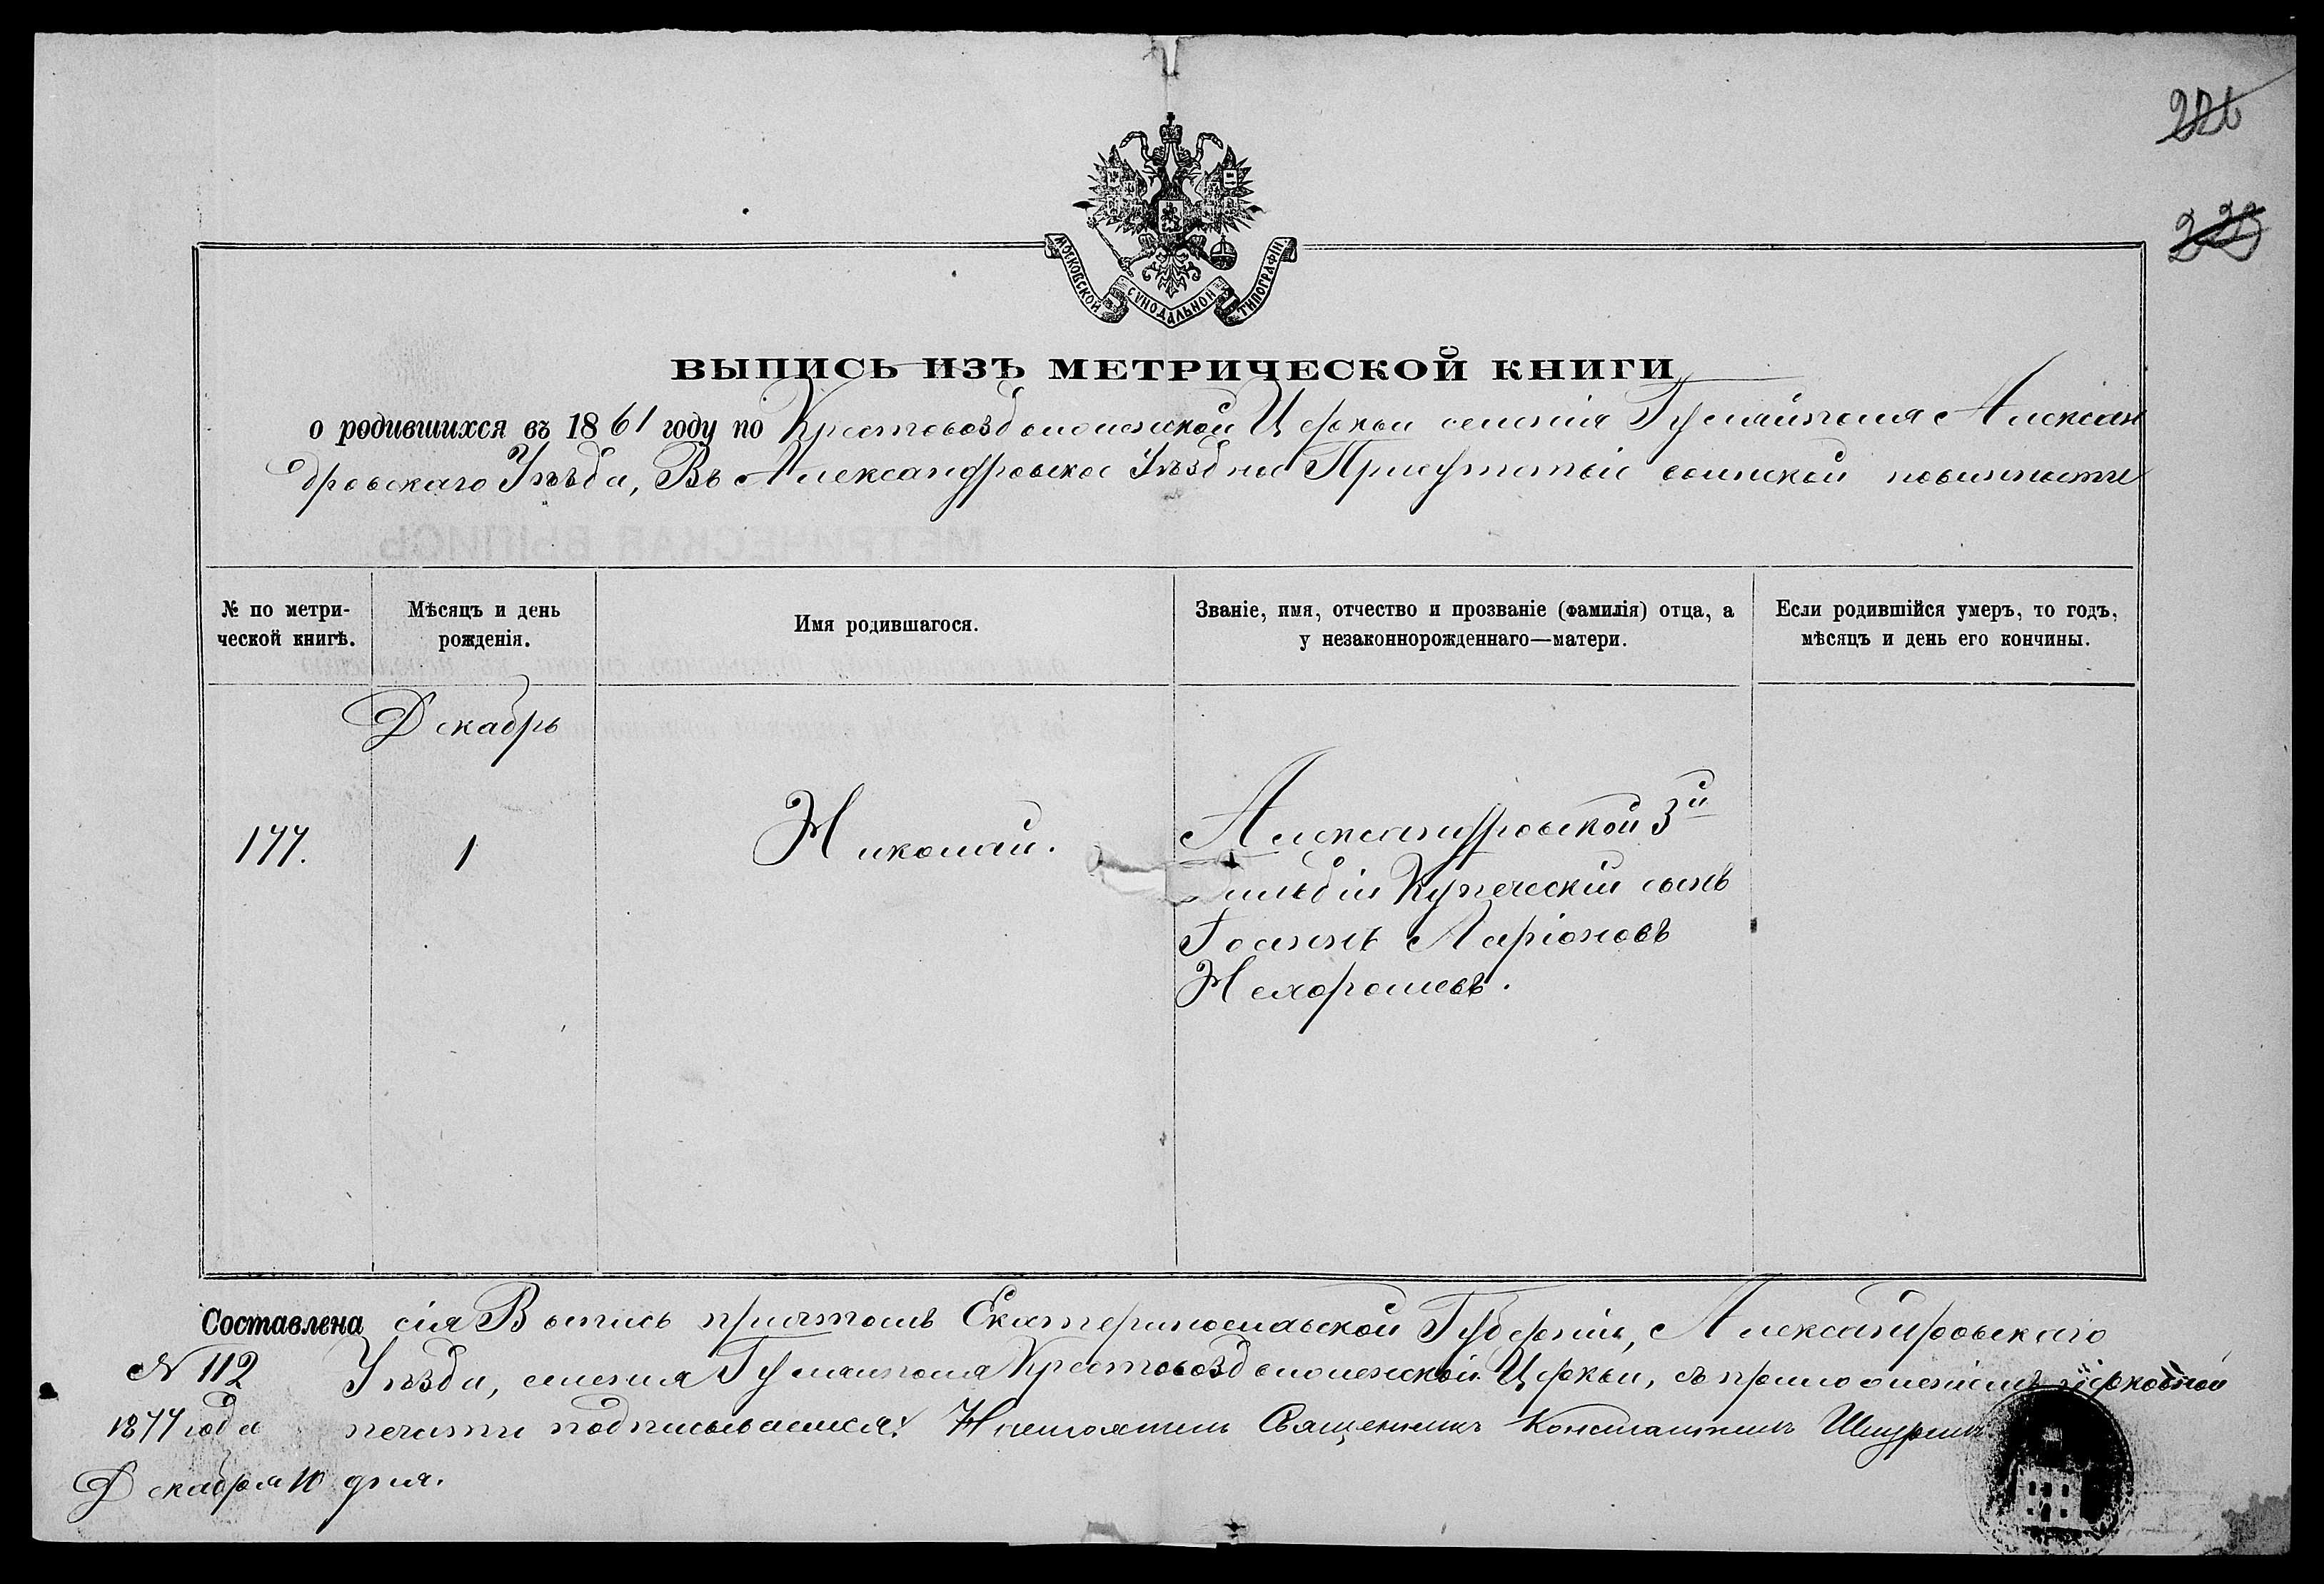 226
223
МОСКОВСКОЙ СѴНОДАЛЬНОЙ ТИПОГРАФІИ
ВЫПИСЬ ИЗЪ МЕТРИЧЕСКОЙ КНИГИ
о родившихся въ 1861 году по Крестовоздвиженской Церкви селенія Гуляйполя Алексан
дровскаго Уѣзда, Въ Александровское Уѣздное Присутствіе воинской повинности
№ по метри-
ческой книгѣ.
Мѣсяцъ и день
рожденія.
Имя родившагося.
Званіе, имя, отчество и прозваніе (фамилія) отца, а
у незаконнорожденнаго—матери.
Если родившійся умеръ, то годъ,
мѣсяцъ и день его кончины.
Декабрь
177.
1
Николай.
Александровской 3й
Гильдіи Купеческій сынъ
Іоаннъ Ларіоновъ
Нехорошевъ.
Составлена сія Выпись причтомъ Екатеринославской Губерніи, Александровскаго
Уѣзда, селенія Гуляйполя Крестовоздвиженской Церкви, съ приложеніемъ церковной
печати подписываемся: Настоятель Священникъ Константинъ
N 112
1877 года
Декабря 10 дня.